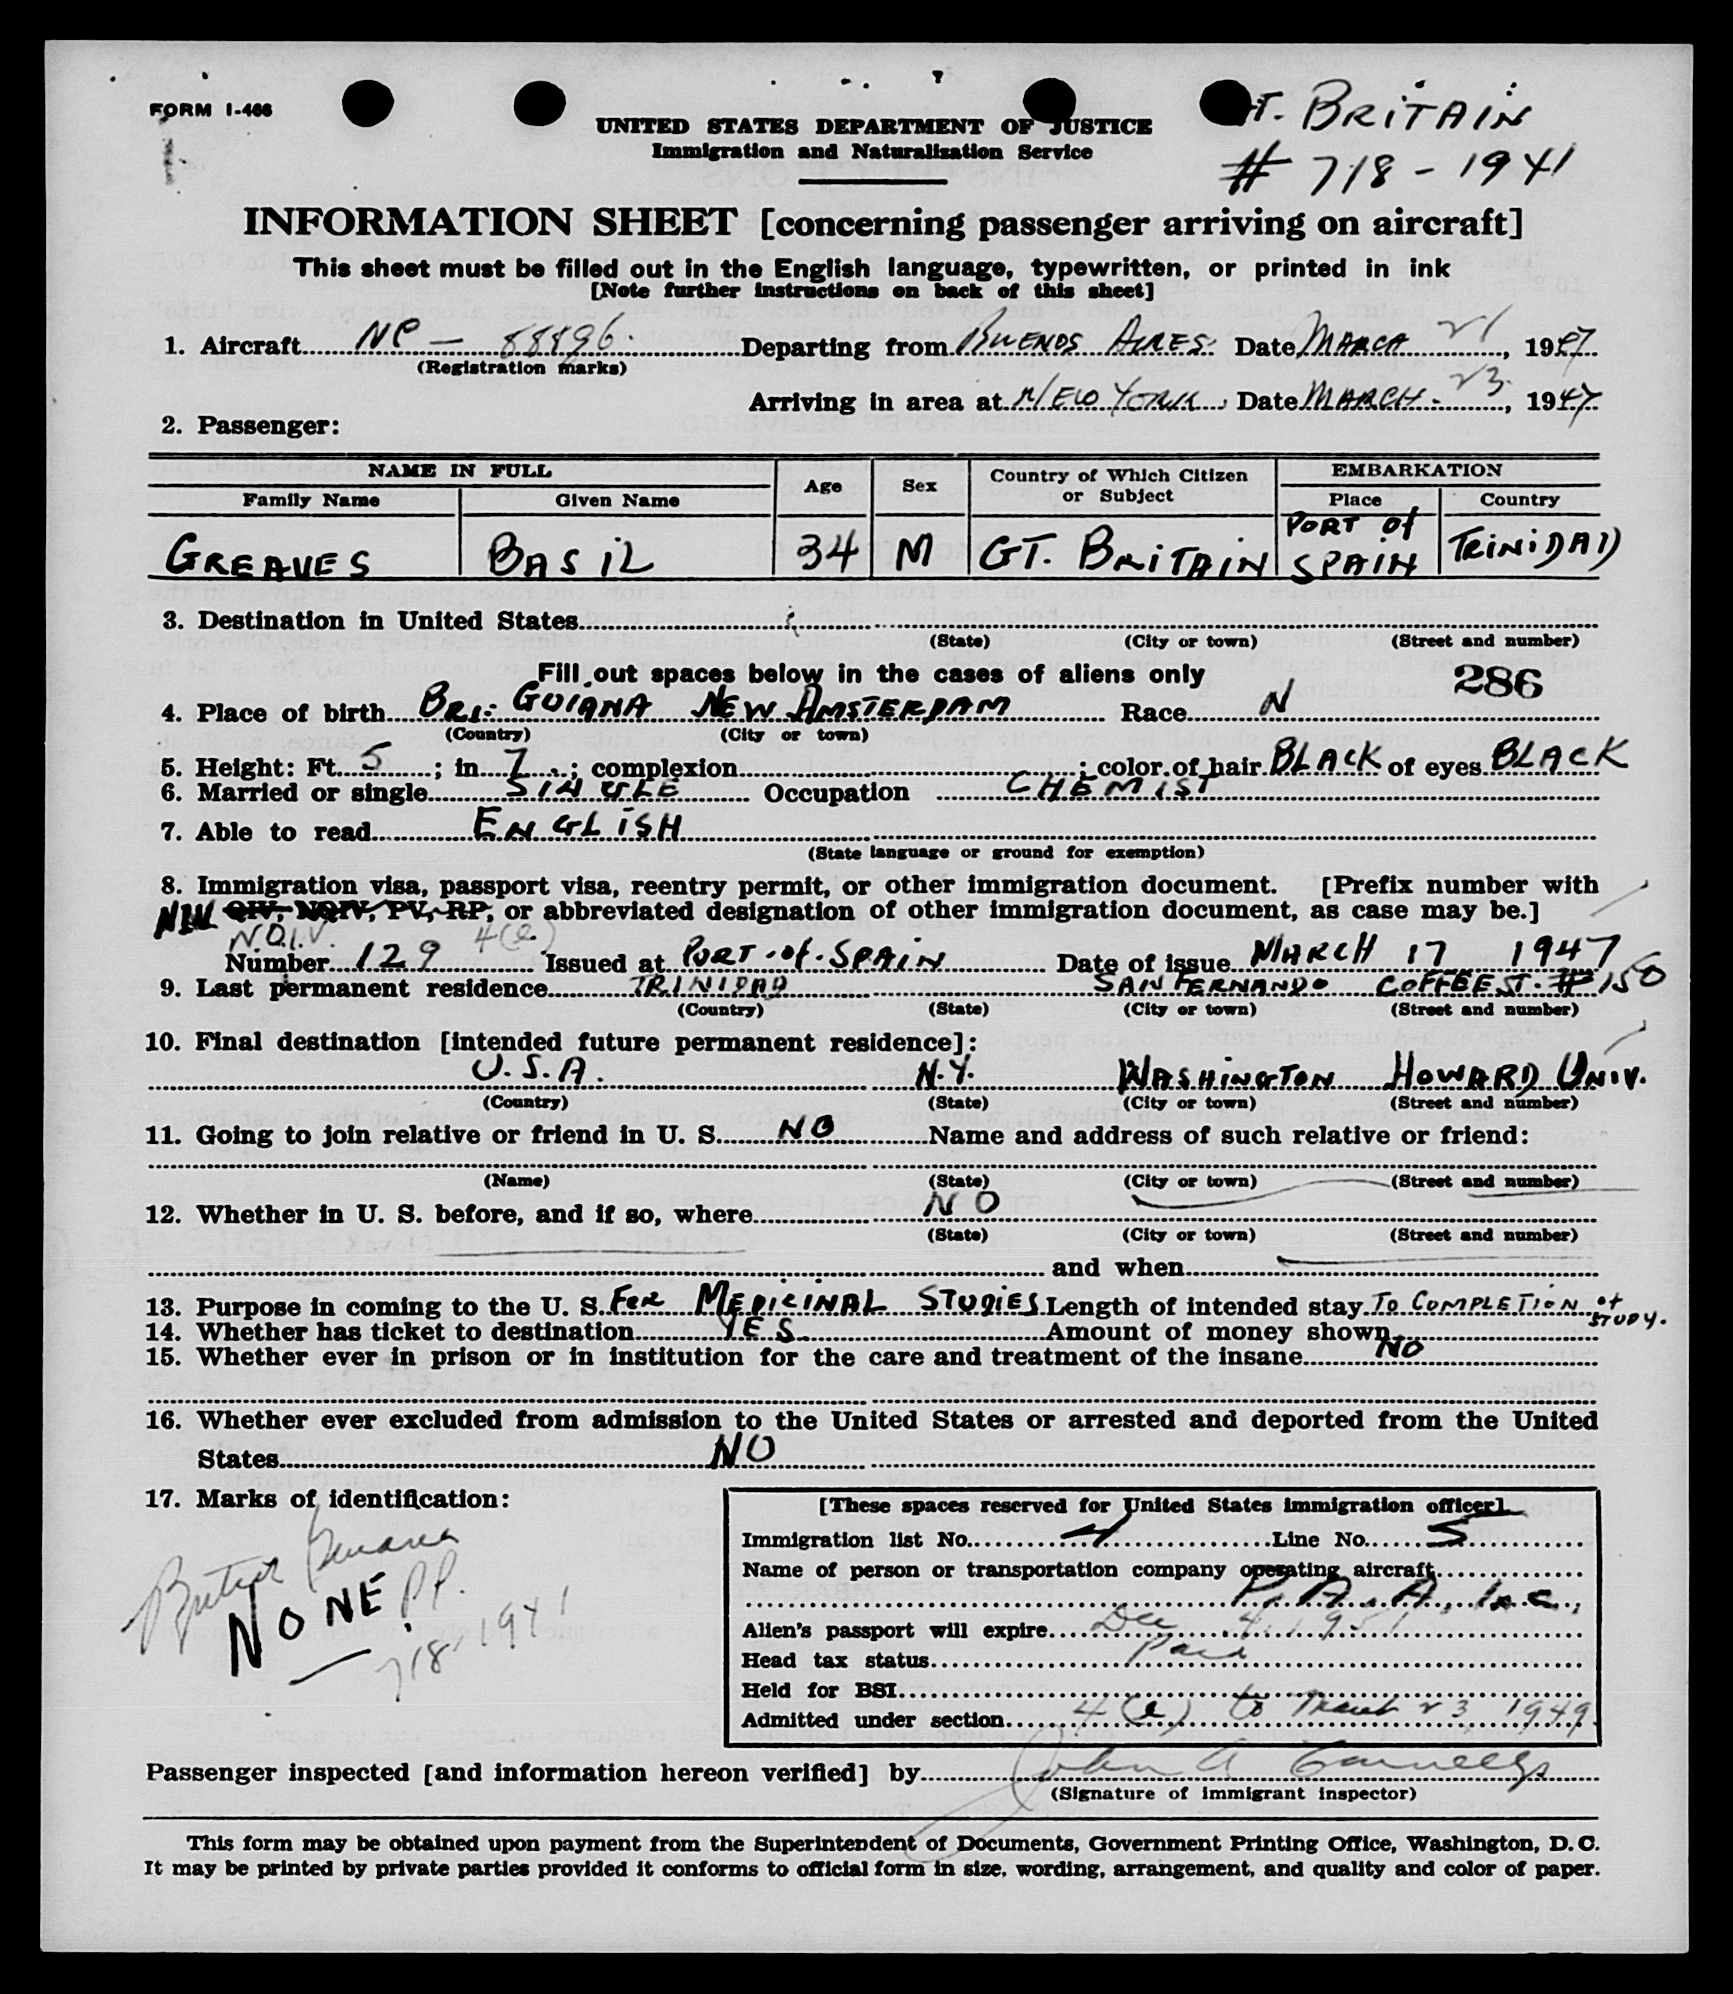 FORM I-466
UNITED STATES DEPARTMENT OF JUSTICE
Immigration and Naturalization Service
T. BRITAIN
# 718-1941
INFORMATION SHEET [concerning passenger arriving on aircraft]
This sheet must be filled out in the English language, typewritten, or printed in ink
[Note further instructions on back of this sheet]
1. Aircraft NC - 88896. Departing from BUENOS AIRES. Date MARCH 21, 1947
(Registration marks)
Arriving in area at NEW YORK. Date MARCH 23, 1947
2. Passenger:
NAME IN FULL Age Sex Country of Which Citizen or Subject EMBARKATION
Family Name Given Name Place Country
GREAVES BASIL 34 M GT. BRITAIN PORT of SPAIN TRINIDAD
3. Destination in United States
(State) (City or town) (Street and number)
Fill out spaces below in the cases of aliens only 286
4. Place of birth BRI: GUIANA NEW AMSTERDAM Race N
(Country) (City or town)
5. Height: Ft. 5; in. 7; complexion; color of hair BLACK of eyes BLACK
6. Married or single SINGLE Occupation CHEMIST
7. Able to read ENGLISH
(State language or ground for exemption)
8. Immigration visa, passport visa, reentry permit, or other immigration document. [Prefix number with
NIV QIV, NQIV, PV, RP, or abbreviated designation of other immigration document, as case may be.]
N.Q.I.V. 4(e)
Number 129 Issued at PORT-of-SPAIN Date of issue MARCH 17 1947
9. Last permanent residence TRINIDAD SAN FERNANDO COFFEE ST. #150
(Country) (State) (City or town) (Street and number)
10. Final destination [intended future permanent residence]:
U.S.A. N.Y. WASHINGTON HOWARD UNIV.
(Country) (State) (City or town) (Street and number)
11. Going to join relative or friend in U. S. NO Name and address of such relative or friend:
(Name) (State) (City or town) (Street and number)
12. Whether in U. S. before, and if so, where NO
(State) (City or town) (Street and number)
and when
13. Purpose in coming to the U. S. FOR MEDICINAL STUDIES Length of intended stay TO COMPLETION of STUDY.
14. Whether has ticket to destination YES Amount of money shown
15. Whether ever in prison or in institution for the care and treatment of the insane NO
16. Whether ever excluded from admission to the United States or arrested and deported from the United
States NO
17. Marks of identification:
British Guiana
NONE P.P.
718-1941
[These spaces reserved for United States immigration officer]
Immigration list No. 4 Line No. 5
Name of person or transportation company operating aircraft
P.A.A., Inc.,
Alien's passport will expire Dec 4, 1951
Head tax status Paid
Held for BSI
Admitted under section 4(e) to March 23, 1949.
Passenger inspected [and information hereon verified] by John A
(Signature of immigrant inspector)
This form may be obtained upon payment from the Superintendent of Documents, Government Printing Office, Washington, D. C.
It may be printed by private parties provided it conforms to official form in size, wording, arrangement, and quality and color of paper.